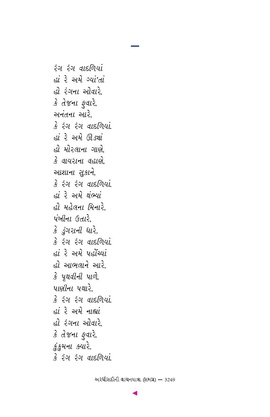 રંગ રંગ વાદળિયાં
હાં રે અમે ગ્યાં'તાં
હો રંગના ઓવારે,
કે તેજના ફુવારે,
અનંતના આરે,
કે રંગ રંગ વાદળિયાં.
હાં રે અમે ઊડ્યાં
હો મોરલાના ગાણે,
કે વાયરાના વહાણે,
આશાના સુકાને,
કે રંગ રંગ વાદળિયાં.
હાં રે અમે થંભ્યાં
હો મહેલના મિનારે,
પંખીના ઉતારે,
કે ડુંગરાની ધારે,
કે રંગ રંગ વાદળિયાં.
હાં રે અમે પહોંચ્યાં
હો આભલાને આરે,
કે પૃથવીની પાળે,
પાણીના પથારે,
કે રંગ રંગ વાદળિયાં.
હાં રે અમે નાહ્યાં
હો રંગના ઓવારે,
કે તેજના ફુવારે,
કુંકુમના ક્યારે,
કે રંગ રંગ વાદળિયાં.
અરધીસદીની વાચનયાત્રા (ભાગ૪) — 3249